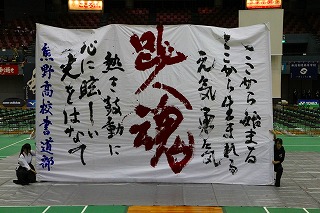 ここから始まる
ここから生まれる
元気勇気
魂
熱き鼓動に
心に眩しい
光をはなて
熊野高校書道部